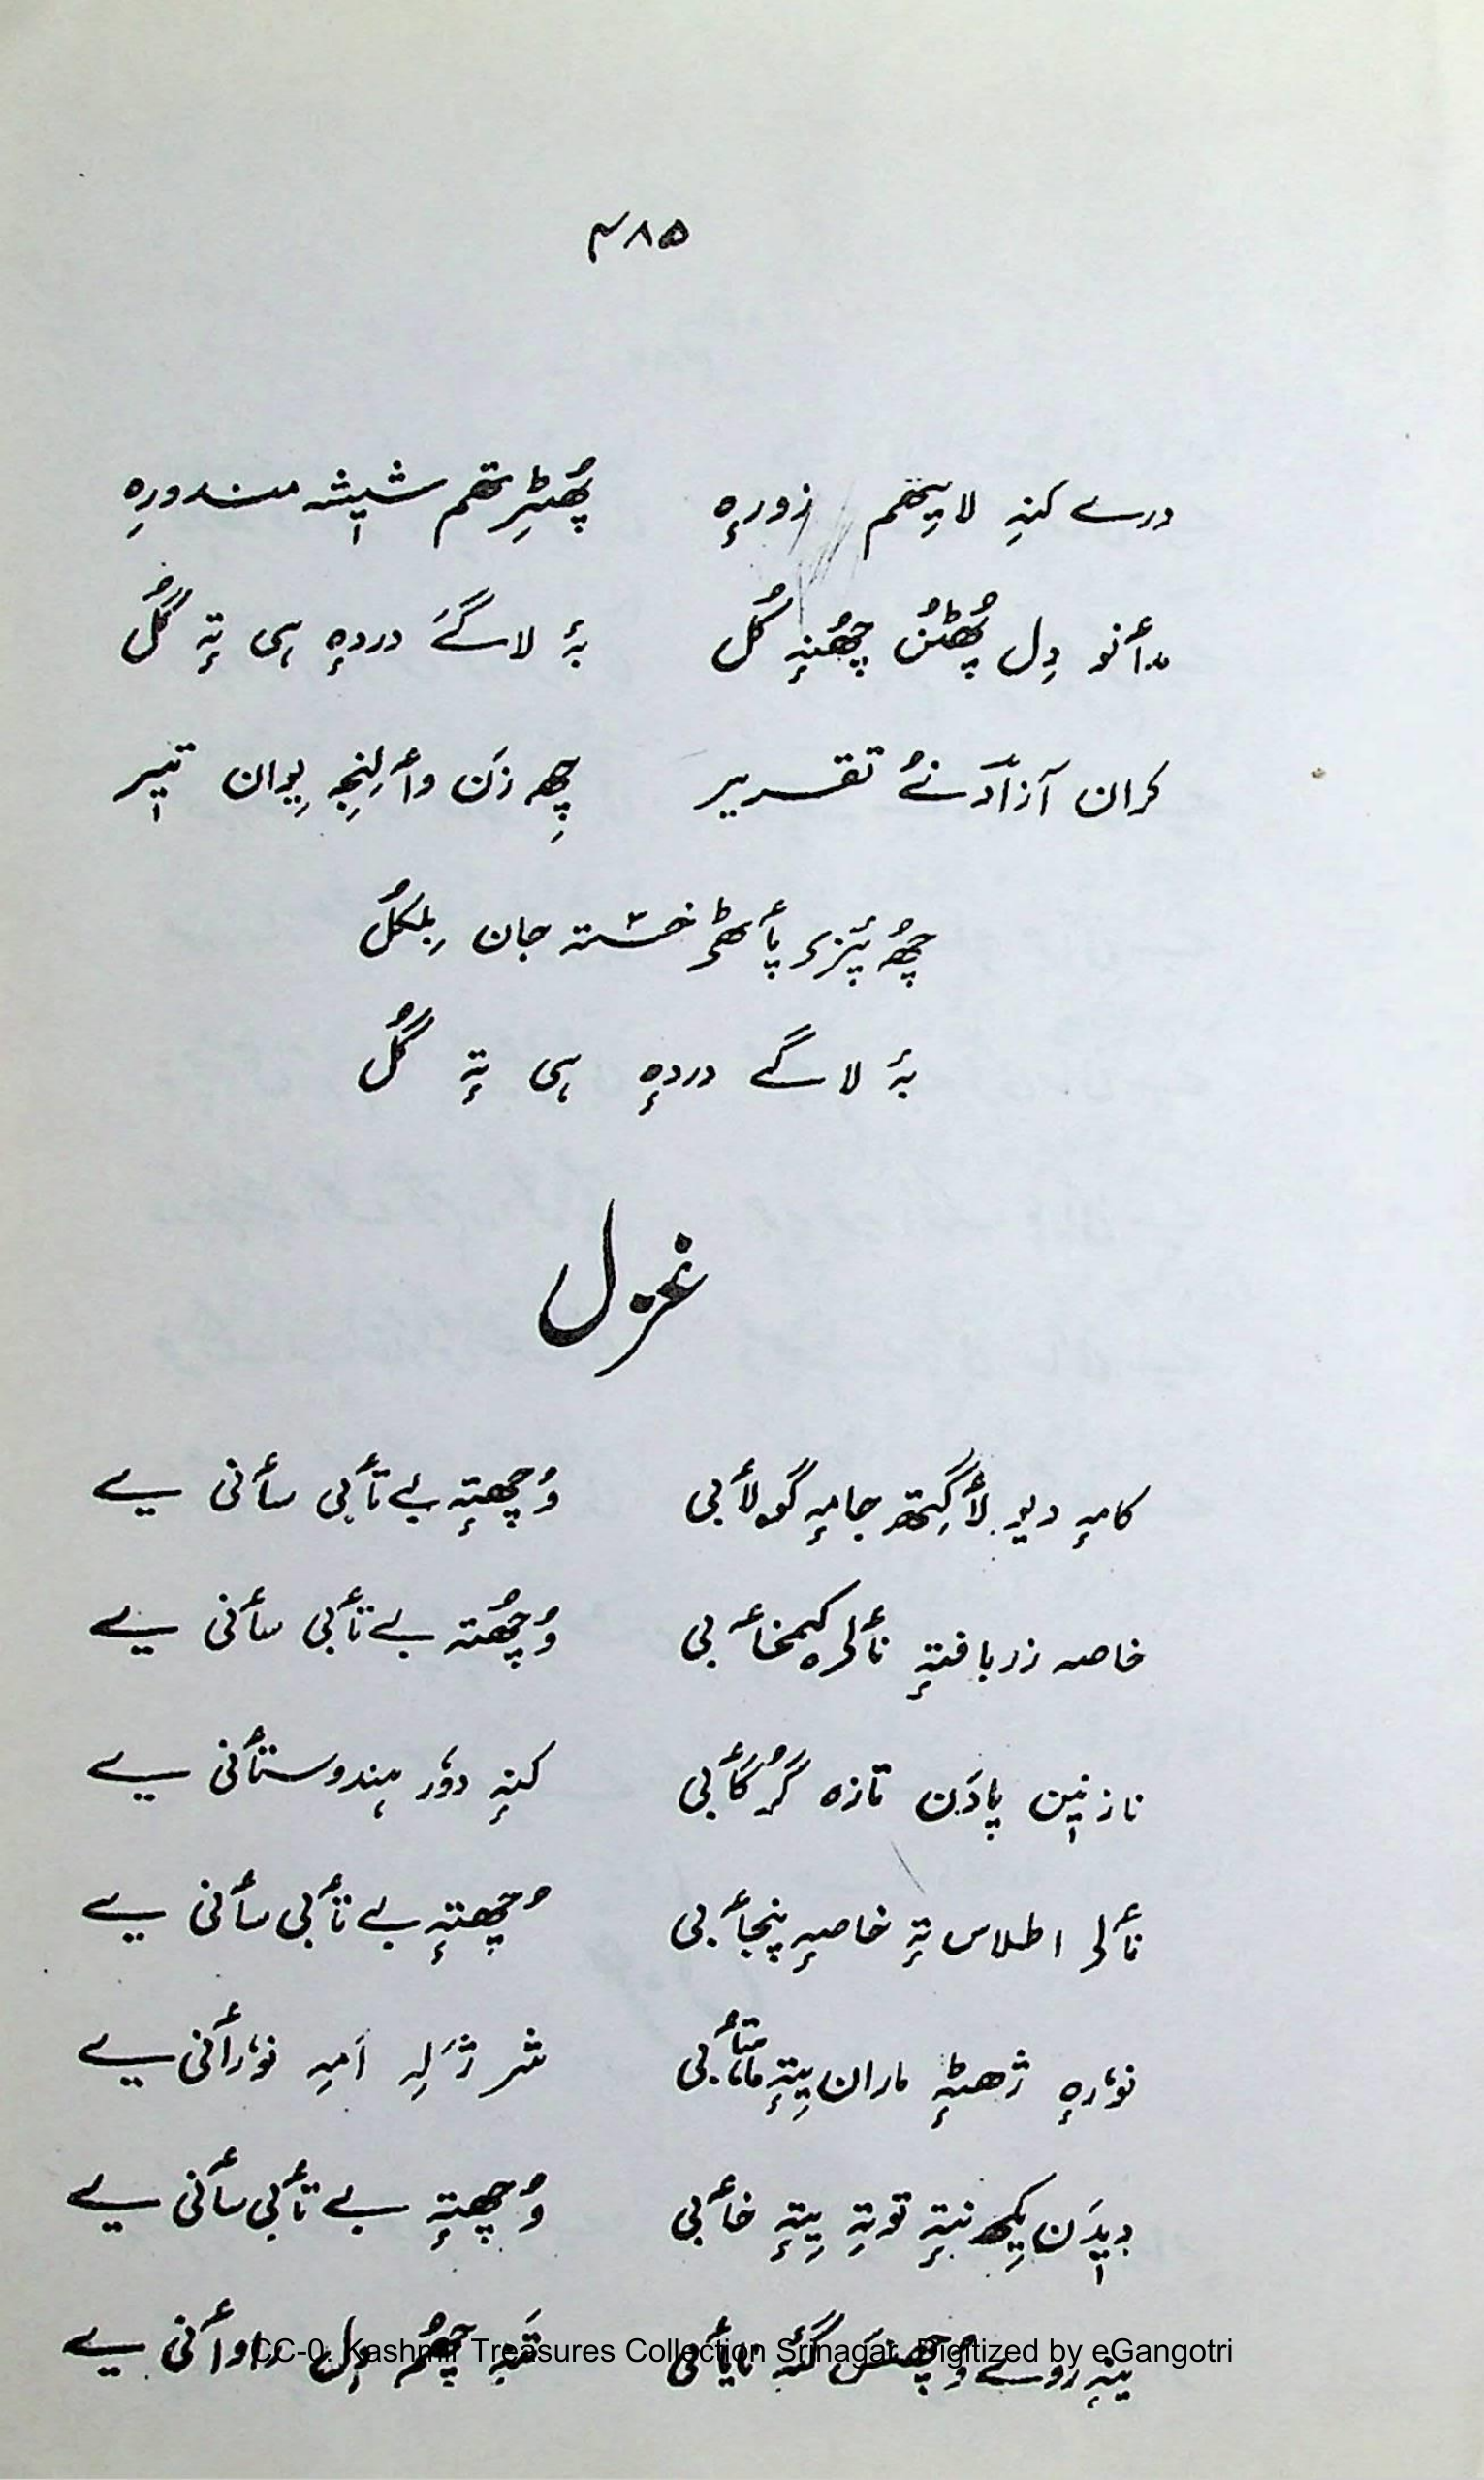 ۴۸۵
درے کنہِ لایِتھم زورہٕ پھُٹرِتھم شیٖشہ مندورِہ
مأنو دِل پھُٹُن چھُنہٕ کُل بہٕ لاگے دردہٕ ہی تہٕ گُل
کران آزادنُے تقریر چھِ زَن وألِنجہِ یِوان تیٖر
چھُ پَزۍ پأٹھۍ خستہ جان بِلکُل
بہٕ لاگے دردہٕ ہی تہٕ گُل
غزل
کامہٕ دیو لأگِتھ جامہٕ گولأبی وُچھتہٕ بے تأبی سأنی یے
خاصہ زربافتہٕ نألۍ کمخأبی وُچھتہ بے تأبی سأنی یے
نازنیٖن پادَن تازہ گُرگأبی کنہٕ دوٗر ہندوستأنی یے
نألۍ اطلاس تہٕ خاصہٕ پنجأبی وُچھتہٕ بے تأبی سأنی یے
نوٗرہٕ ژھٹہٕ ماران پتہٕ مہتأبی شر ژَلہِ اَمہِ نوٗرأنی یے
دیٖدَن یِکھ نتہٕ توتہِ یِتہٕ خأبی وُچھتہٕ بے تأبی سأنی یے
ینہٕ روے وُچھنَس گئہ نایأبی تَنہٕ چھُم دِل راوأنی یے
CC-0. Kashmir Treasures Collection Srinagar. Digitized by eGangotri